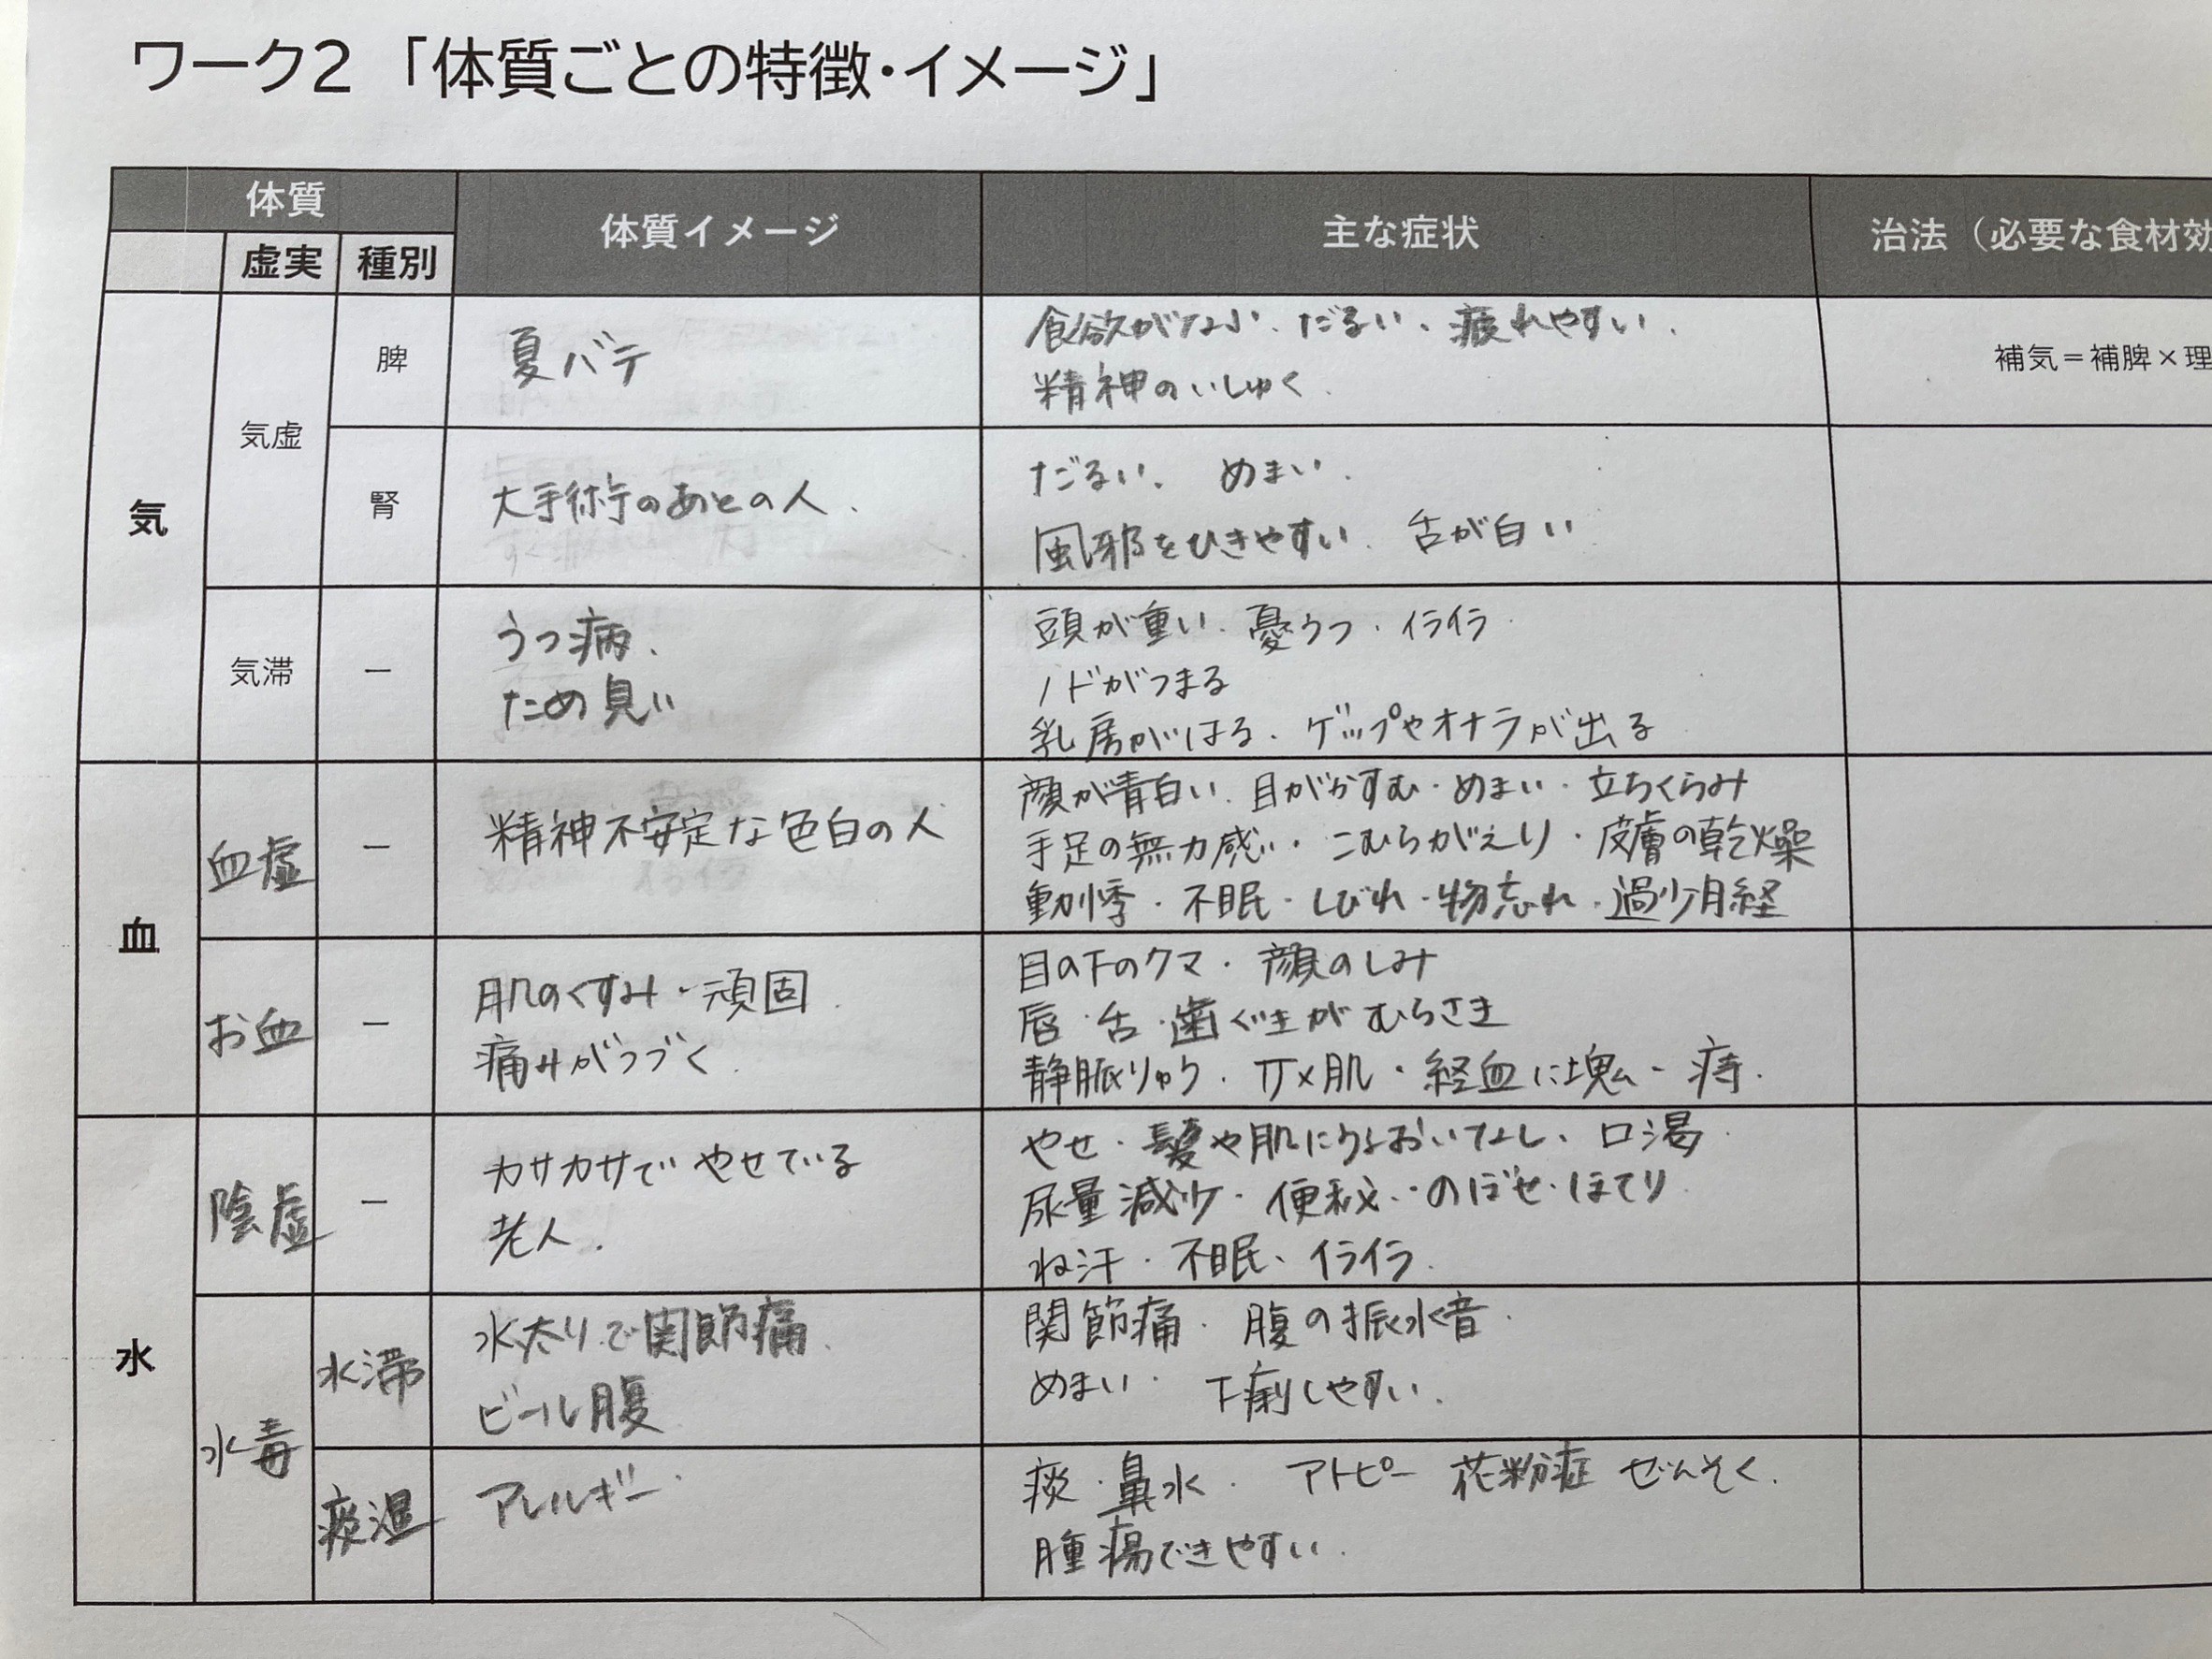 ワーク2「体質ごとの特徴・イメージ」
体質
体質イメージ
主な症状
治法（必要な食材効
虚実
種別
気
気虚
脾
夏バテ
食欲がない、だるい、疲れやすい、
精神のいしゅく、
補気＝補脾×理
腎
大手術のあとの人、
だるい、めまい、
風邪をひきやすい、舌が白い
気滞
ー
うつ病、
ため息い
頭が重い、憂うつ・イライラ
ノドがつまる
乳房がはる、ゲップやオナラが出る
血
血虚
ー
精神不安定な色白の人
顔が青白い、目がかすむ・めまい・立ちくらみ
手足の無力感・こむらがえり・皮膚の乾燥
動悸・不眠・しびれ・物忘れ・過少月経
お血
ー
肌のくすみ・頑固
痛みがつづく、
目の下のクマ・顔のしみ
唇・舌・歯ぐきがむらさき
静脈りゅう、サメ肌・経血に塊・痔、
水
陰虚
ー
カサカサでやせている
老人、
やせ・髪や肌にうるおいなし、口渇
尿量減少・便秘・のぼせ・ほてり
ね汗・不眠、イライラ、
水毒
水滞
水太りで関節痛、
ビール腹
関節痛、腹の振水音、
めまい、下痢しやすい、
痰湿
アレルギー
痰・鼻水、アトピー 花粉症 ぜんそく、
腫瘍できやすい、